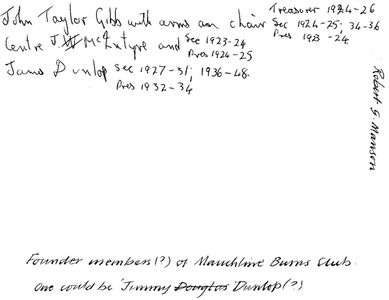 John Taylor Gibb with arms on chair Treasurer 1924-26
Sec 1924-25; 34-36
Pres 1923-24
Centre J. W McIntyre and Sec 1923-24
Pres 1924-25
James Dunlop Sec 1927-31; 1936-48.
Pres 1932-34
Robert G. Manson
Founder members(?) of Mauchline Burns Club.
One could be 'Jimmy Douglas Dunlop(?)